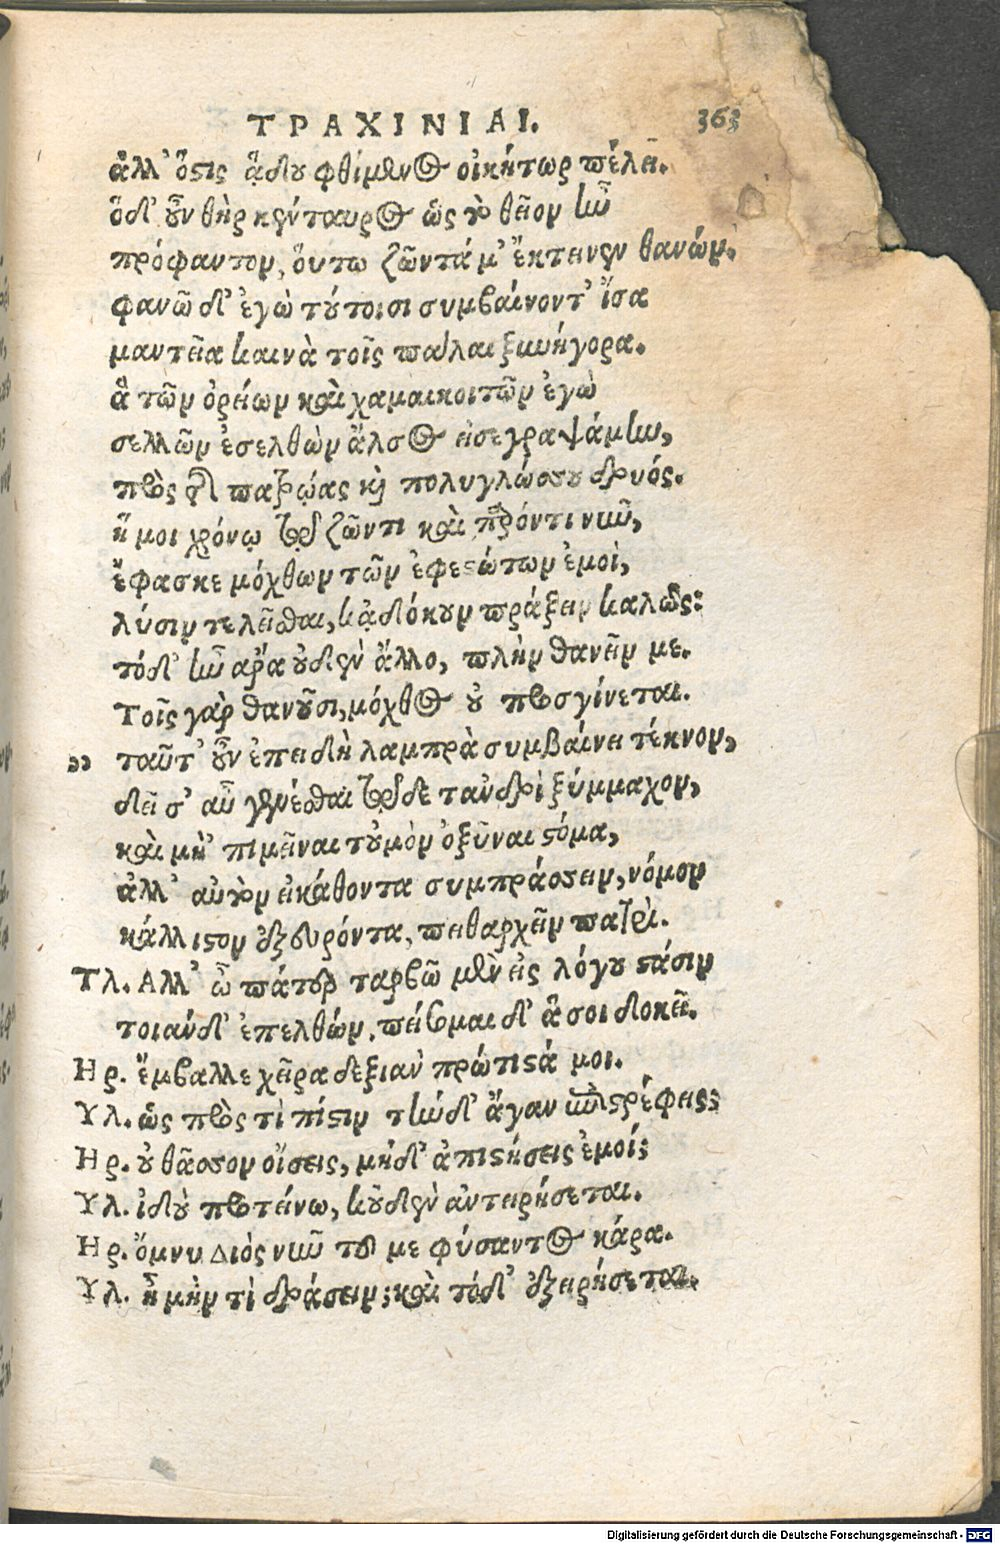 ΤΡΑΧΙΝΙΑΙ. 363
ἀλλ' ὅστις ᾅδου φθίμενος οἰκήτωρ πέλει.
ὅδ' οὖν θὴρ κένταυρος ὡς τὸ θεῖον ἦν
πρόφαντον, οὕτω ζῶντά μ' ἔκτεινεν θανών.
φανῶ δ' ἐγὼ τούτοισι συμβαίνοντ' ἴσα
μαντεῖα καινὰ τοῖς πάλαι ξυνήγορα.
ἃ τῶν ὀρείων καὶ χαμαικοιτῶν ἐγὼ
σελλῶν ἐσελθὼν ἄλσος εἰσεγραψάμην,
πρὸς τῆς πατρῴας καὶ πολυγλώσσου δρυός.
ἥ μοι χρόνῳ τῷ ζῶντι καὶ παρόντι νῦν,
ἔφασκε μόχθων τῶν ἐφεστώτων ἐμοὶ,
λύσιν τελεῖσθαι, κᾀδόκουν πράξειν καλῶς:
τόδ' ἦν ἄρα οὐδὲν ἄλλο, πλὴν θανεῖν με.
τοῖς γὰρ θανοῦσι, μόχθος οὐ προσγίνεται.
ταῦτ' οὖν ἐπειδὴ λαμπρὰ συμβαίνει τέκνον,
δεῖ σ' αὖ γενέσθαι τῷδε τἀνδρὶ ξύμμαχον,
καὶ μὴ' πιμεῖναι τοὐμὸν ὀξῦναι στόμα,
ἀλλ' αὐτὸν εἰκάθοντα συμπράσσειν, νόμον
κάλλιστον ἐξευρόντα, πειθαρχεῖν πατρί.
Υλ. Αλλ' ὦ πάτερ ταρβῶ μὲν εἰς λόγου στάσιν
τοιάνδ' ἐπελθών, πείσομαι δ' ἅ σοι δοκεῖ.
Ηρ. ἔμβαλλε χεῖρα δεξιὰν πρώτιστά μοι.
Υλ. ὡς πρὸς τὶ πίστιν τήνδ' ἄγαν ἐπιστρέφεις;
Ηρ. οὐ θᾶσσον οἴσεις, μηδ' ἀπιστήσεις ἐμοί;
Υλ. ἰδοὺ προτείνω, κοὐδὲν ἀντειρήσεται.
Ηρ. ὄμνυ Διός νῦν τοῦ με φύσαντος κάρα.
Υλ. ἦ μὴν τὶ δράσειν; καὶ τόδ' ἐξειρήσεται.
Digitalisierung gefördert durch die Deutsche Forschungsgemeinschaft - DFG